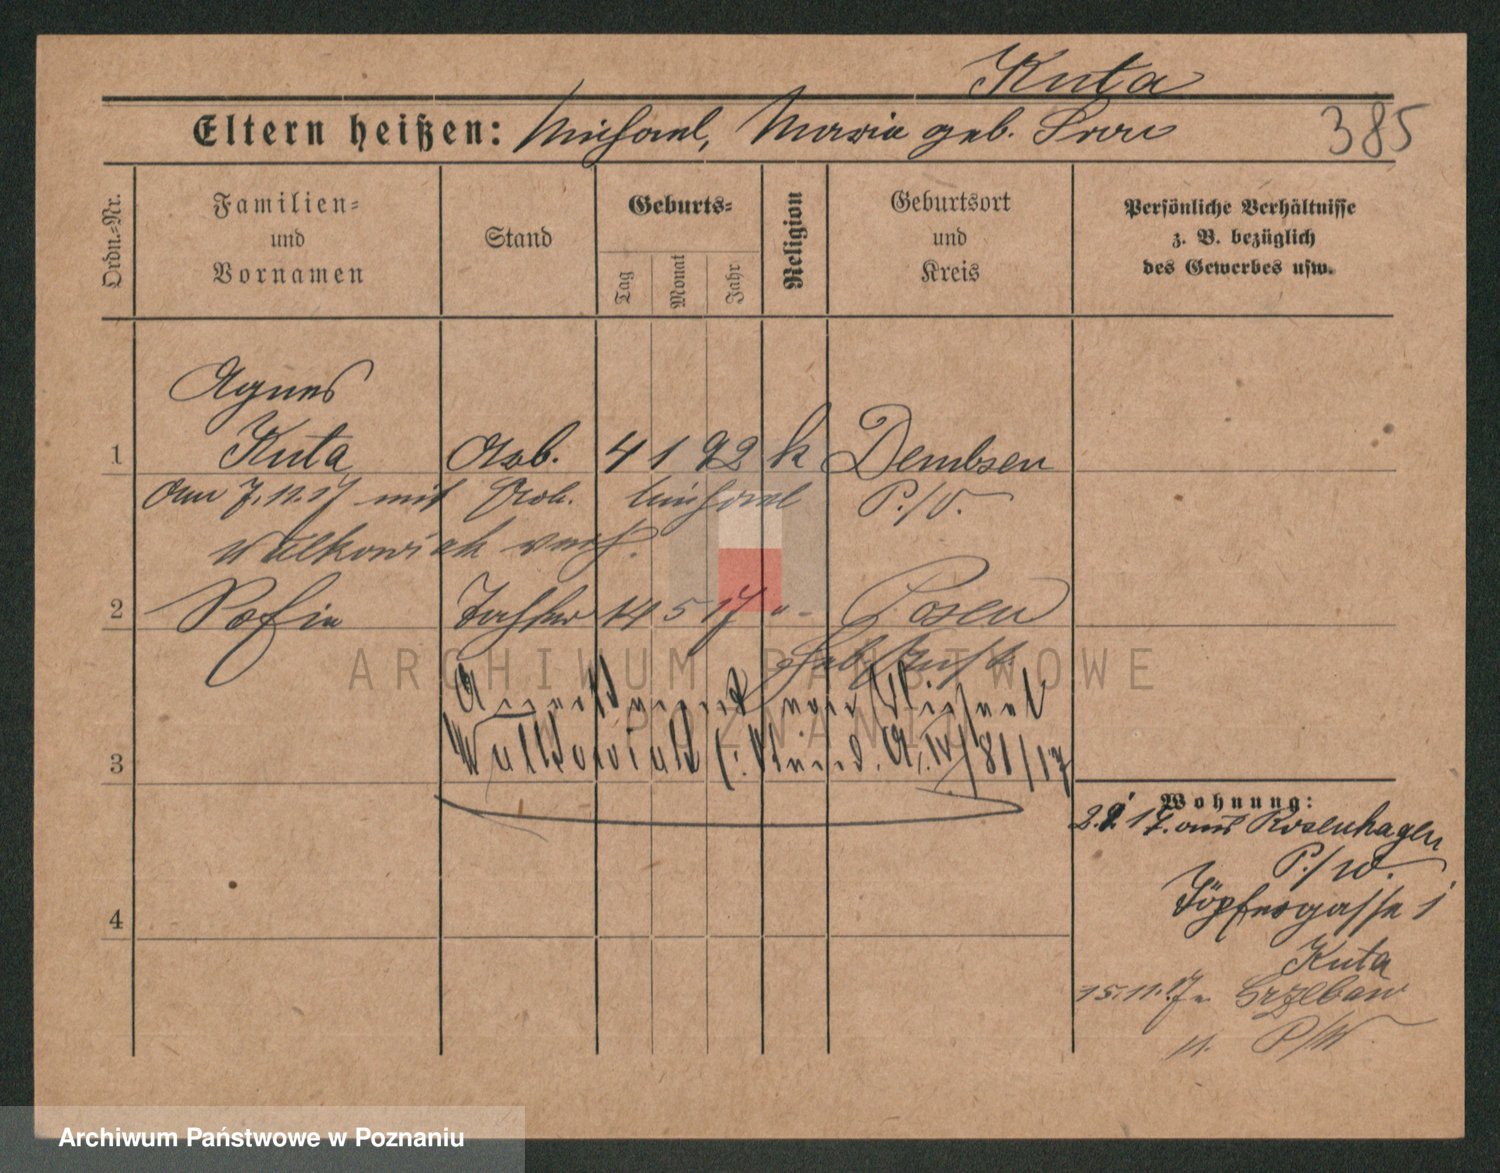 Kuta
Eltern heißen: Michael, Maria geb.
385
Ordn.-Nr.
Familien-
und
Vornamen
Stand
Geburts-
Tag
Monat
Jahr
Religion
Geburtsort
und
Kreis
Persönliche Verhältnisse
z. B. bezüglich
des Gewerbes usw.
Agnes
1 Kuta Arb. 4 1 92 k Dembsen
Am 7.11.17 mit Arb. Michael P./O.
Walkowiak verh.
2 Sofia Tochter 14 5 17 " - Posen
Anerkannt von Michael
3 Walkowiak A. IV/81/17
Wohnung:
17. aus Rosenhagen
P./W.
Töpfergasse 1
4
Kuta
15.11.17 n.
n. P/W.
ARCHIWUM PAŃSTWOWE
POZNANIU
Archiwum Państwowe w Poznaniu